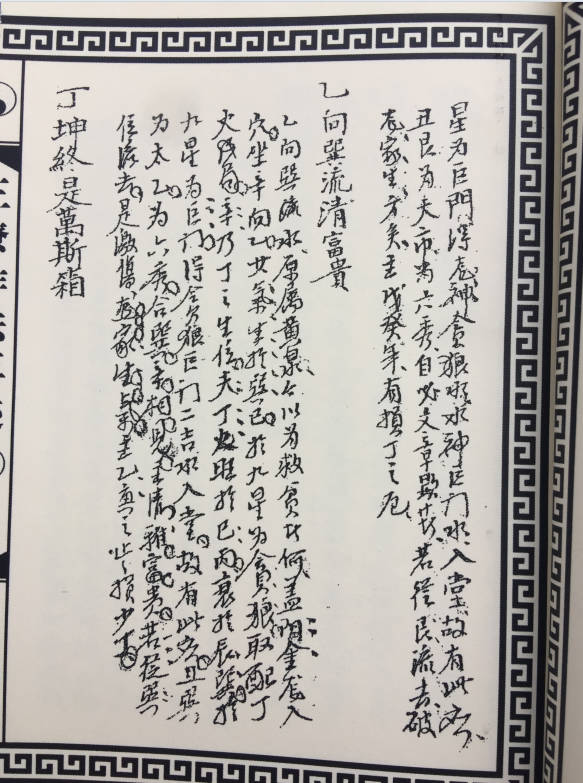 星為巨門淂龙神貪狼水神巨門水入堂故有此応
丑艮為天市為六秀自必文章顯若從艮流去破
龙家生方矣主戊癸年有損丁之厄
乙向巽流清富貴
乙向巽流水原屬黃泉今以為救貧其何盖陰金龙入
穴坐辛向乙其氣生於巽巳於九星為貪狼取配丁
火為局辛乃丁之生位夫丁火旺於巳丙衰於辰巽於
九星為巨門得貪狼巨門二吉水入堂故有此応且巽
為太乙為六秀合巽辛相見主清雅富貴若從巽
位流去是傷龙家生氣主乙年之損少丁
丁坤終是萬斯箱